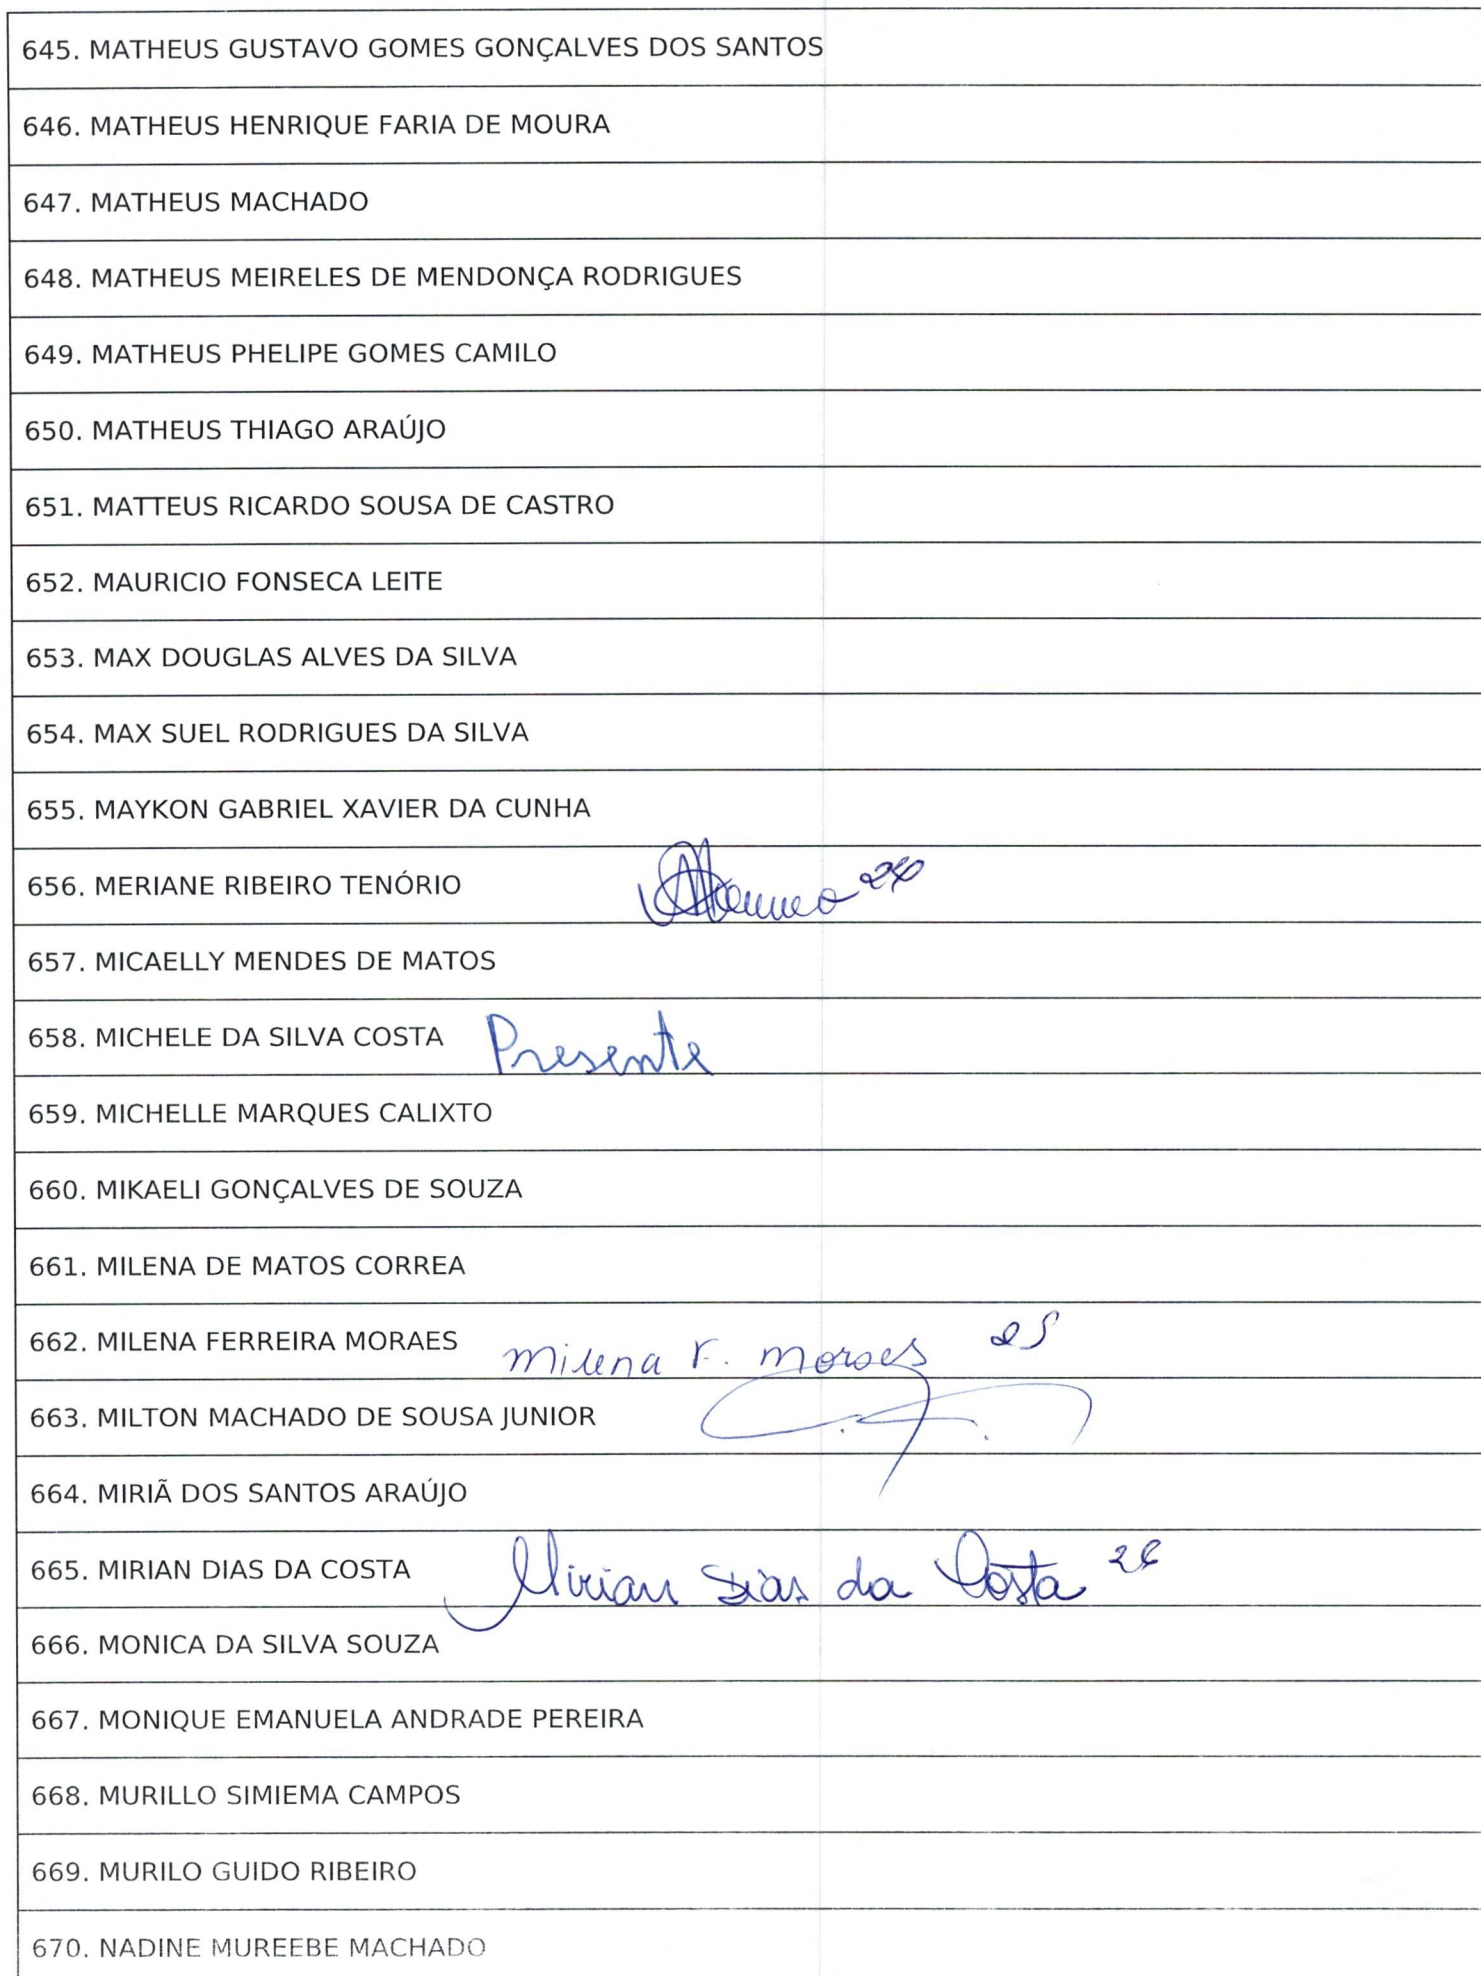 645. MATHEUS GUSTAVO GOMES GONÇALVES DOS SANTOS
646. MATHEUS HENRIQUE FARIA DE MOURA
647. MATHEUS MACHADO
648. MATHEUS MEIRELES DE MENDONÇA RODRIGUES
649. MATHEUS PHELIPE GOMES CAMILO
650. MATHEUS THIAGO ARAÚJO
651. MATTEUS RICARDO SOUSA DE CASTRO
652. MAURICIO FONSECA LEITE
653. MAX DOUGLAS ALVES DA SILVA
654. MAX SUEL RODRIGUES DA SILVA
655. MAYKON GABRIEL XAVIER DA CUNHA
656. MERIANE RIBEIRO TENÓRIO
657. MICAELLY MENDES DE MATOS
658. MICHELE DA SILVA COSTA Presente
659. MICHELLE MARQUES CALIXTO
660. MIKAELI GONÇALVES DE SOUZA
661. MILENA DE MATOS CORREA
662. MILENA FERREIRA MORAES Milena F. Moraes 25
663. MILTON MACHADO DE SOUSA JUNIOR
664. MIRIÃ DOS SANTOS ARAÚJO
665. MIRIAN DIAS DA COSTA Mirian Dias da Costa 26
666. MONICA DA SILVA SOUZA
667. MONIQUE EMANUELA ANDRADE PEREIRA
668. MURILLO SIMIEMA CAMPOS
669. MURILO GUIDO RIBEIRO
670. NADINE MUREEBE MACHADO